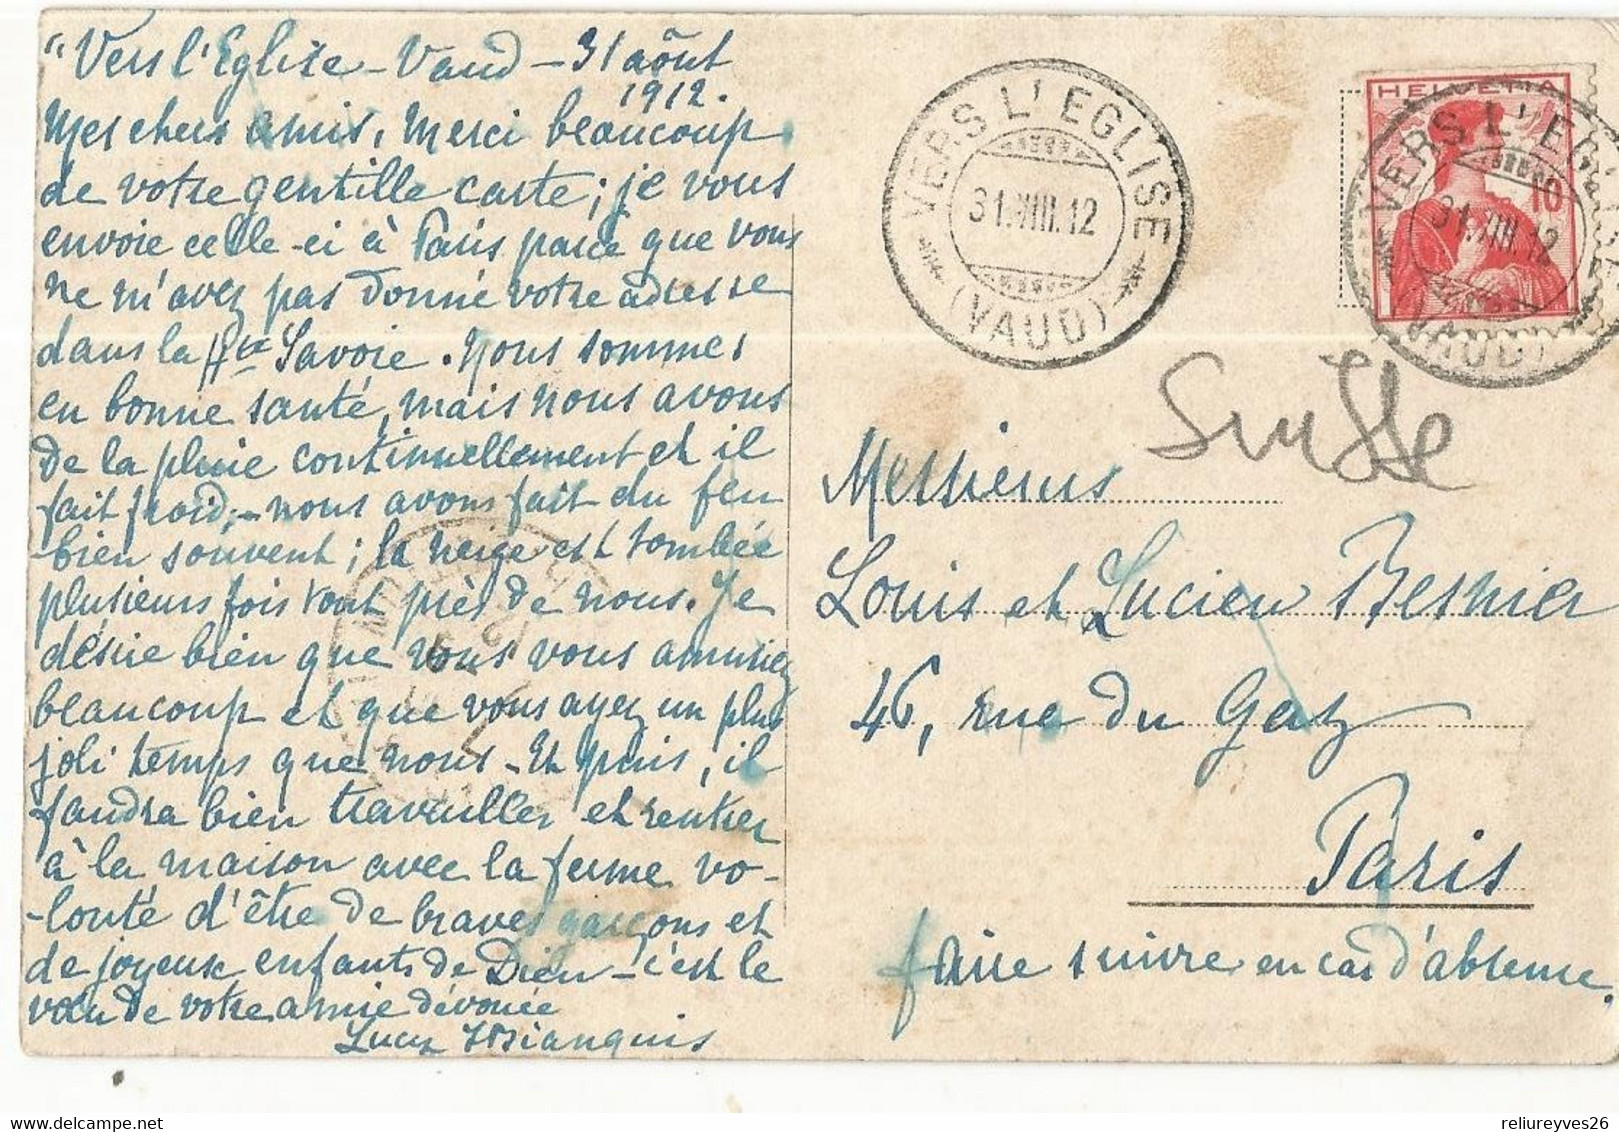 "Vers l'Eglise - Vaud - 31 août
1912.
Mes chers amis, Merci beaucoup
de votre gentille carte; je vous
envoie celle-ci à Paris parce que vous
ne m'avez pas donné votre adresse
dans la Hte Savoie. Nous sommes
en bonne santé, mais nous avons
de la pluie continuellement et il
fait froid; - nous avons fait du feu
bien souvent; la neige est tombée
plusieurs fois tout près de nous. Je
désire bien que vous vous amusiez
beaucoup et que vous ayez un plus
joli temps que nous - Et puis, il
faudra bien travailler et rentrer
à la maison avec la ferme vo-
-lonté d'être de braves garçons et
de joyeux enfants de Dieu - c'est le
vœu de votre amie dévouée
Lucy Bianquis
VERS L'EGLISE
31.VIII.12
(VAUD)
HELVETIA
10
VERS L'EGLISE
31.VIII.12
(VAUD)
Suisse
Messieurs
Louis et Lucien Besnier
46, rue du Gaz
Paris
faire suivre en cas d'absence.
reliureyves26